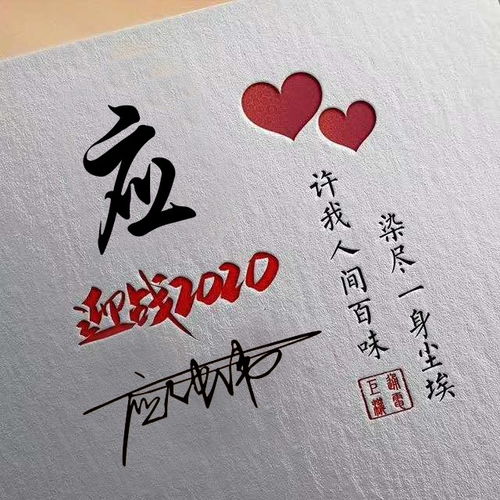 应
迎战2020
许我人间百味
染尽一身尘埃